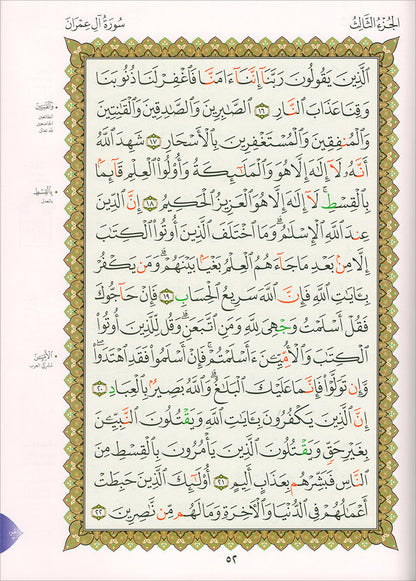 سُورَةُ آلِ عِمْرَانَ
الجُزْءُ الثَّالِثُ
ٱلَّذِينَ يَقُولُونَ رَبَّنَآ إِنَّنَآ ءَامَنَّا فَٱغْفِرْ لَنَا ذُنُوبَنَا
وَقِنَا عَذَابَ ٱلنَّارِ ١٦ ٱلصَّٰبِرِينَ وَٱلصَّٰدِقِينَ وَٱلْقَٰنِتِينَ
وَٱلْمُنفِقِينَ وَٱلْمُسْتَغْفِرِينَ بِٱلْأَسْحَارِ ١٧ شَهِدَ ٱللَّهُ
أَنَّهُۥ لَآ إِلَٰهَ إِلَّا هُوَ وَٱلْمَلَٰٓئِكَةُ وَأُو۟لُوا۟ ٱلْعِلْمِ قَآئِمًۢا
بِٱلْقِسْطِ ۚ لَآ إِلَٰهَ إِلَّا هُوَ ٱلْعَزِيزُ ٱلْحَكِيمُ ١٨ إِنَّ ٱلدِّينَ
عِندَ ٱللَّهِ ٱلْإِسْلَٰمُ ۗ وَمَا ٱخْتَلَفَ ٱلَّذِينَ أُوتُوا۟ ٱلْكِتَٰبَ
إِلَّا مِنۢ بَعْدِ مَا جَآءَهُمُ ٱلْعِلْمُ بَغْيًۢا بَيْنَهُمْ ۗ وَمَن يَكْفُرْ
بِـَٔايَٰتِ ٱللَّهِ فَإِنَّ ٱللَّهَ سَرِيعُ ٱلْحِسَابِ ١٩ فَإِنْ حَآجُّوكَ
فَقُلْ أَسْلَمْتُ وَجْهِىَ لِلَّهِ وَمَنِ ٱتَّبَعَنِ ۗ وَقُل لِّلَّذِينَ أُوتُوا۟
ٱلْكِتَٰبَ وَٱلْأُمِّيِّـۧنَ ءَأَسْلَمْتُمْ ۚ فَإِنْ أَسْلَمُوا۟ فَقَدِ ٱهْتَدَوا۟ ۖ
وَّإِن تَوَلَّوْا۟ فَإِنَّمَا عَلَيْكَ ٱلْبَلَٰغُ ۗ وَٱللَّهُ بَصِيرٌۢ بِٱلْعِبَادِ ٢٠
إِنَّ ٱلَّذِينَ يَكْفُرُونَ بِـَٔايَٰتِ ٱللَّهِ وَيَقْتُلُونَ ٱلنَّبِيِّـۧنَ
بِغَيْرِ حَقٍّ وَيَقْتُلُونَ ٱلَّذِينَ يَأْمُرُونَ بِٱلْقِسْطِ مِنَ
ٱلنَّاسِ فَبَشِّرْهُم بِعَذَابٍ أَلِيمٍ ٢١ أُو۟لَٰٓئِكَ ٱلَّذِينَ حَبِطَتْ
أَعْمَٰلُهُمْ فِى ٱلدُّنْيَا وَٱلْـَٔاخِرَةِ وَمَا لَهُم مِّن نَّٰصِرِينَ ٢٢
وَٱلْقَٰنِتِينَ
بِٱلْقِسْطِ
بالعدل
وَٱلْأُمِّيِّـۧنَ
مشركي العرب
٥٢